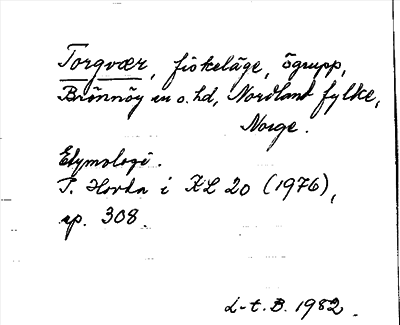 Torgvær, fiskeläge, ögrupp,
Brönnöy m o. hd, Nordland fylke,
Norge.
Etymologi.
P. Hovda i KL 20 (1976),
sp. 308.
L-t. B. 1982.